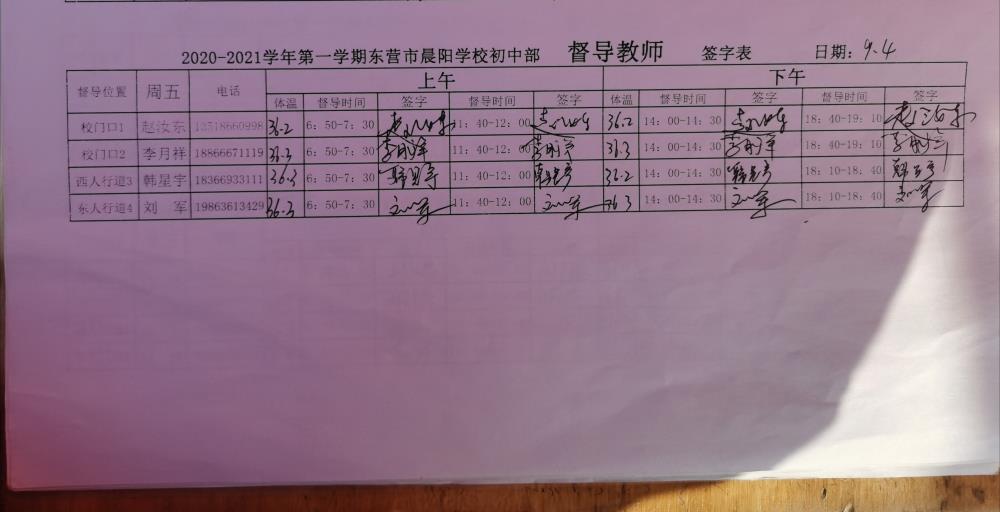 2020-2021学年第一学期东营市晨阳学校初中部 督导教师 签字表 日期：9.4
督导位置 周五 电话 上午 下午
体温 督导时间 签字 督导时间 签字 体温 督导时间 签字 督导时间 签字
校门口1 赵汝东 13518660998 36.2 6：50-7：30 赵汝东 11：40-12：00 赵汝东 36.2 14：00-14：30 赵汝东 18：40-19：10 赵汝东
校门口2 李月祥 18866671119 36.3 6：50-7：30 李月祥 11：40-12：00 李月祥 36.3 14：00-14：30 李月祥 18：40-19：10 李月祥
西人行道3 韩星宇 18366933111 36.3 6：50-7：30 韩星宇 11：40-12：00 韩星宇 36.2 14：00-14：30 韩星宇 18：10-18：40 韩星宇
东人行道4 刘 军 19863613429 36.3 6：50-7：30 刘军 11：40-12：00 刘军 36.3 14：00-14：30 刘军 18：10-18：40 刘军